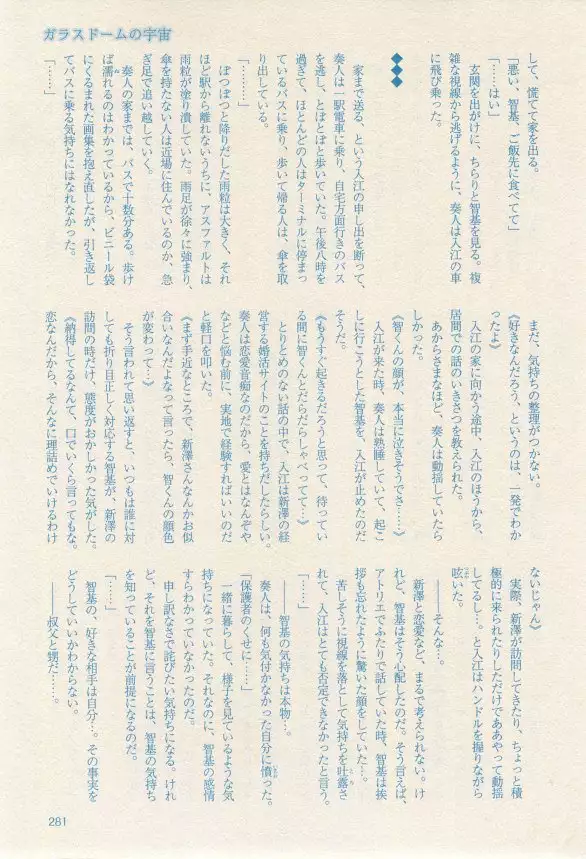 ガラスドームの宇宙
して、慌てて家を出る。
「悪い、智基、ご飯先に食べてて」
「……はい」
玄関を出がけに、ちらりと智基を見る。複
雑な視線から逃げるように、奏人は入江の車
に飛び乗った。
◆◆◆
家まで送る、という入江の申し出を断って、
奏人は一駅電車に乗り、自宅方面行きのバス
を逃し、とぼとぼと歩いていた。午後八時を
過ぎて、ほとんどの人はターミナルに停まっ
ているバスに乗り、歩いて帰る人は、傘を取
り出している。
「………」
ぽつぽつと降りだした雨粒は大きく、それ
ほど駅から離れないうちに、アスファルトは
雨粒が塗り潰していた。雨足が徐々に強まり、
傘を持たない人は近場に住んでいるのか、急
ぎ足で追い越していく。
奏人の家までは、バスで十数分ある。歩け
ば濡れるのはわかっているから、ビニール袋
にくるまれた画集を抱え直したが、引き返し
てバスに乗る気持ちにはなれなかった。
「……」
まだ、気持ちの整理がつかない。
《好きなんだろう、というのは、一発でわか
ったよ》
入江の家に向かう途中、入江のほうから、
居間での話のいきさつを教えられた。
あからさまなほど、奏人は動揺していたら
しかった。
《智くんの顔が、本当に泣きそうでさ……》
入江が来た時、奏人は熟睡していて、起こ
しに行こうとした智基を、入江が止めたのだ
そうだ。
《もうすぐ起きるだろうと思って、待ってい
る間に智くんとだらだらしゃべってて…》
とりとめのない話の中で、入江は新澤の経
営する婚活サイトのことを持ちだしたらしい。
奏人は恋愛音痴なのだから、愛とはなんぞや
などと悩む前に、実地で経験すればいいのだ
と軽口を叩いた。
《まず手近なところで、新澤さんなんかお似
合いなんだよなって言ったら、智くんの顔色
が変わって…》
そう言われて思い返すと、いつもは誰に対
しても折り目正しく対応する智基が、新澤の
訪問の時だけ、態度がおかしかった気がした。
《納得してるなんて、口でいくら言ってもな。
恋なんだから、そんなに理詰めでいけるわけ
ないじゃん》
実際、新澤が訪問してきたり、ちょっと積
極的に来られたりしただけでああやって動揺
してるし…、と入江はハンドルを握りながら
呟いた。
――そんな…。
新澤と恋愛など、まるで考えられない。け
れど、智基はそう心配したのだ。そう言えば、
アトリエでふたりで話していた時、智基は挨
拶も忘れたように驚いた顔をしていた…。
苦しそうに視線を落として気持ちを吐露さ
れて、入江はとても否定できなかったと言う。
「……」
――智基の気持ちは本物…。
奏人は、何も気付かなかった自分に憤った。
「保護者のくせに……」
一緒に暮らして、様子を見ているような気
持ちになっていた。それなのに、智基の感情
すらわかっていなかったのだ。
申し訳なさで詫びたい気持ちになる。けれ
ど、それを智基に言うことは、智基の気持ち
を知っていることが前提になるのだ。
「……」
智基の、好きな相手は自分…。その事実を
どうしていいかわからない。
――叔父と甥だ……。
281